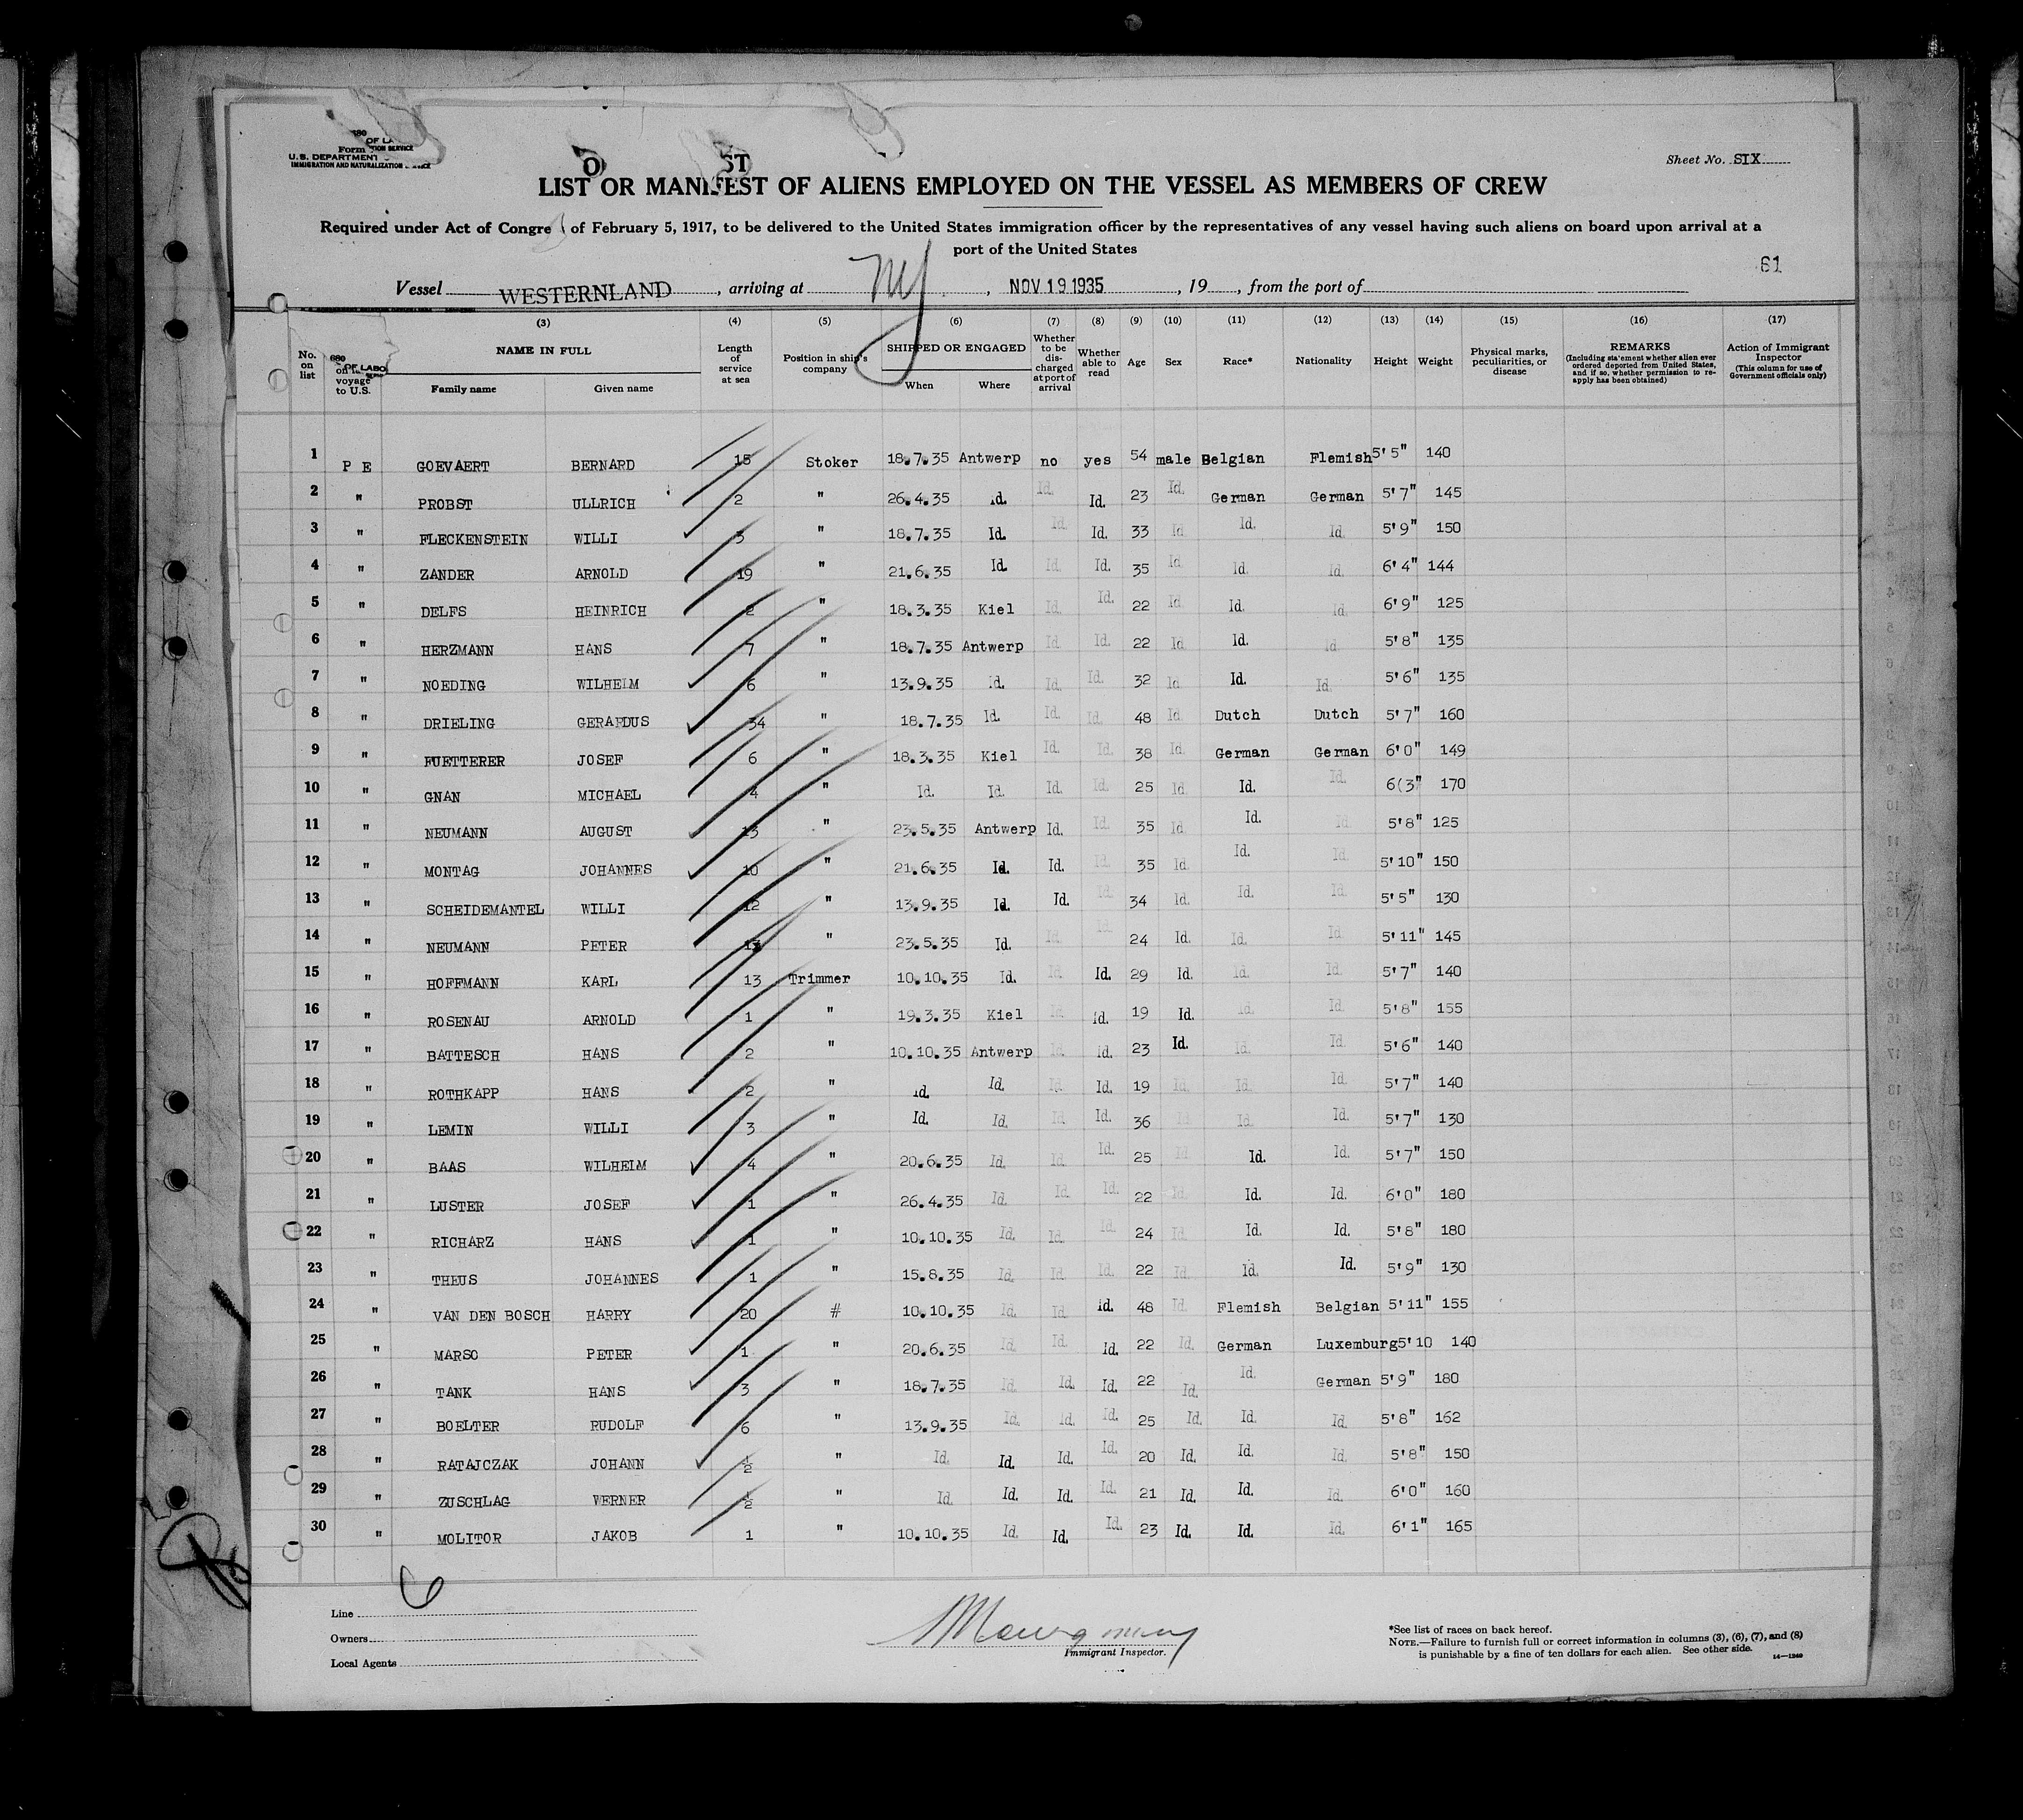 680
OF LA
Form TION SERVICE
U.S. DEPARTMENT
IMMIGRATION AND NATURALIZATION
O ST
Sheet No. SIX
LIST OR MANIFEST OF ALIENS EMPLOYED ON THE VESSEL AS MEMBERS OF CREW
Required under Act of Congre of February 5, 1917, to be delivered to the United States immigration officer by the representatives of any vessel having such aliens on board upon arrival at a
port of the United States
61
Vessel WESTERNLAND, arriving at NY, NOV 19 1935, 19, from the port of
(3) (4) (5) (6) (7) (8) (9) (10) (11) (12) (13) (14) (15) (16) (17)
No. on list
680 OF LABO
on voyage to U.S.
NAME IN FULL
Family name Given name
Length of service at sea
Position in ship's company
SHIPPED OR ENGAGED
When Where
Whether to be discharged at port of arrival
Whether able to read
Age
Sex
Race*
Nationality
Height
Weight
Physical marks, peculiarities, or disease
REMARKS
(Including statement whether alien ever ordered deported from United States, and if so, whether permission to re-apply has been obtained)
Action of Immigrant Inspector
(This column for use of Government officials only)
1 P E GOEVAERT BERNARD 15 Stoker 18.7.35 Antwerp no yes 54 male Belgian Flemish 5'5" 140
2 " PROBST ULLRICH 2 " 26.4.35 Id. Id. Id. 23 Id. German German 5'7" 145
3 " FLECKENSTEIN WILLI 3 " 18.7.35 Id. Id. Id. 33 Id. Id. Id. 5'9" 150
4 " ZANDER ARNOLD 19 " 21.6.35 Id. Id. Id. 35 Id. Id. Id. 6'4" 144
5 " DELFS HEINRICH 2 " 18.3.35 Kiel Id. Id. 22 Id. Id. Id. 6'9" 125
6 " HERZMANN HANS 7 " 18.7.35 Antwerp Id. Id. 22 Id. Id. Id. 5'8" 135
7 " NOEDING WILHELM 6 " 13.9.35 Id. Id. Id. 32 Id. Id. Id. 5'6" 135
8 " DRIELING GERARDUS 34 " 18.7.35 Id. Id. Id. 48 Id. Dutch Dutch 5'7" 160
9 " FUETTERER JOSEF 6 " 18.3.35 Kiel Id. Id. 38 Id. German German 6'0" 149
10 " GNAN MICHAEL 4 " Id. Id. Id. Id. 25 Id. Id. Id. 6(3" 170
11 " NEUMANN AUGUST 13 " 23.5.35 Antwerp Id. Id. 35 Id. Id. Id. 5'8" 125
12 " MONTAG JOHANNES 10 " 21.6.35 Id. Id. Id. 35 Id. Id. Id. 5'10" 150
13 " SCHEIDEMANTEL WILLI 12 " 13.9.35 Id. Id. Id. 34 Id. Id. Id. 5'5" 130
14 " NEUMANN PETER 13 " 23.5.35 Id. Id. Id. 24 Id. Id. Id. 5'11" 145
15 " HOFFMANN KARL 13 Trimmer 10.10.35 Id. Id. Id. 29 Id. Id. Id. 5'7" 140
16 " ROSENAU ARNOLD 1 " 19.3.35 Kiel Id. Id. 19 Id. Id. Id. 5'8" 155
17 " BATTESCH HANS 2 " 10.10.35 Antwerp Id. Id. 23 Id. Id. Id. 5'6" 140
18 " ROTHKAPP HANS 2 " Id. Id. Id. Id. 19 Id. Id. Id. 5'7" 140
19 " LEMIN WILLI 3 " Id. Id. Id. Id. 36 Id. Id. Id. 5'7" 130
20 " BAAS WILHELM 4 " 20.6.35 Id. Id. Id. 25 Id. Id. Id. 5'7" 150
21 " LUSTER JOSEF 1 " 26.4.35 Id. Id. Id. 22 Id. Id. Id. 6'0" 180
22 " RICHARZ HANS 1 " 10.10.35 Id. Id. Id. 24 Id. Id. Id. 5'8" 180
23 " THEUS JOHANNES 1 " 15.8.35 Id. Id. Id. 22 Id. Id. Id. 5'9" 130
24 " VAN DEN BOSCH HARRY 20 # 10.10.35 Id. Id. Id. 48 Id. Flemish Belgian 5'11" 155
25 " MARSO PETER 1 " 20.6.35 Id. Id. Id. 22 Id. German Luxemburg 5'10 140
26 " TANK HANS 3 " 18.7.35 Id. Id. Id. 22 Id. Id. German 5'9" 180
27 " BOELTER RUDOLF 6 " 13.9.35 Id. Id. Id. 25 Id. Id. Id. 5'8" 162
28 " RATAJCZAK JOHANN ½ " Id. Id. Id. Id. 20 Id. Id. Id. 5'8" 150
29 " ZUSCHLAG WERNER ½ " Id. Id. Id. Id. 21 Id. Id. Id. 6'0" 160
30 " MOLITOR JAKOB 1 " 10.10.35 Id. Id. Id. 23 Id. Id. Id. 6'1" 165
6
Line
Owners
Local Agents
Immigrant Inspector.
*See list of races on back hereof.
NOTE.—Failure to furnish full or correct information in columns (3), (6), (7), and (8)
is punishable by a fine of ten dollars for each alien. See other side.
14—1240